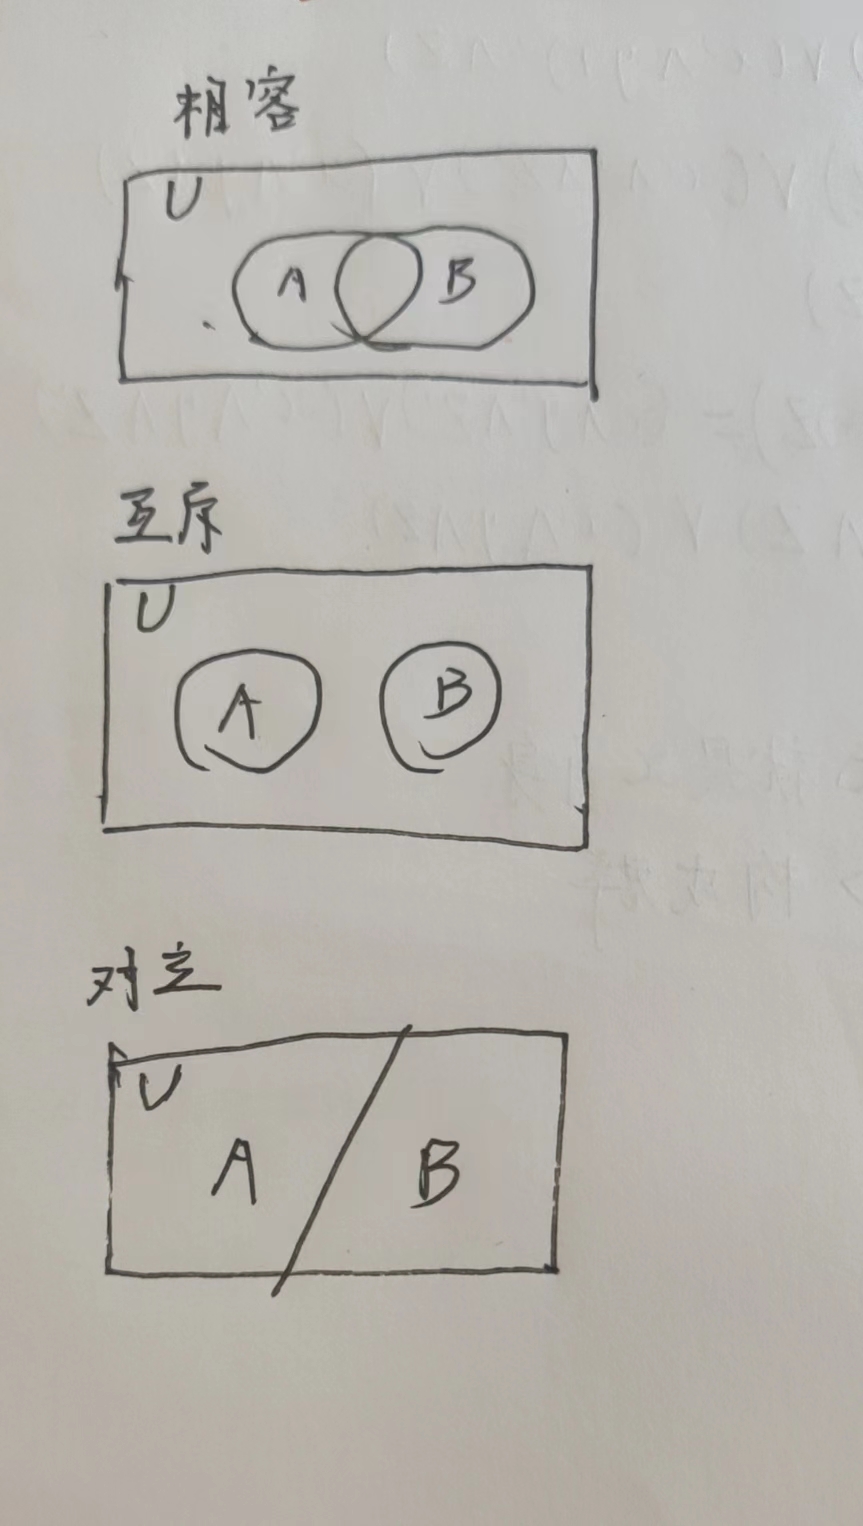 相容
U
A B
互斥
U
A B
对立
U
A B